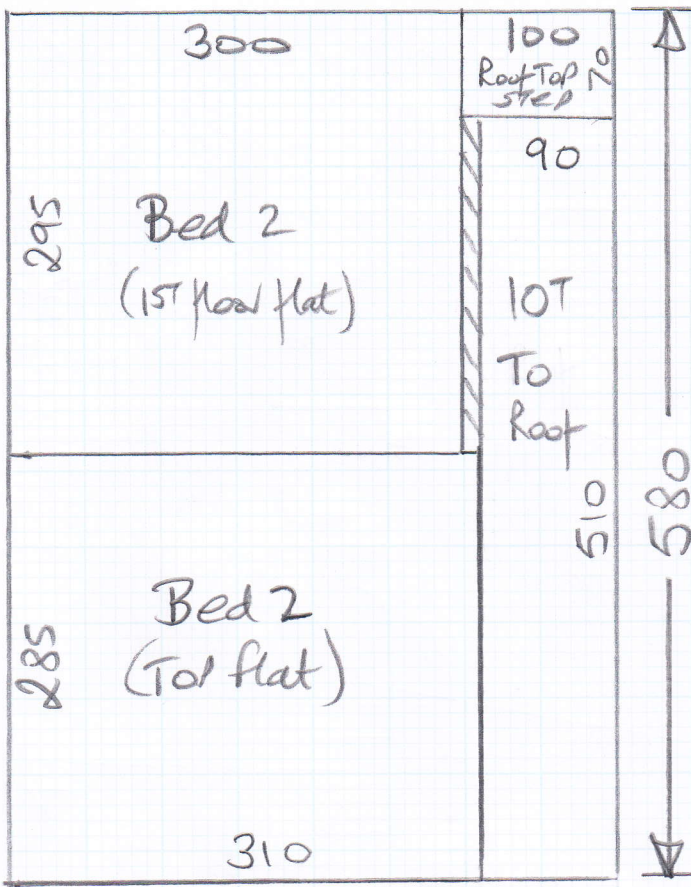 300
100
Roof Top
step
70
90
295
Bed 2
(1ST floor flat)
10T
To
Roof
510
580
Bed 2
(Top flat)
285
310